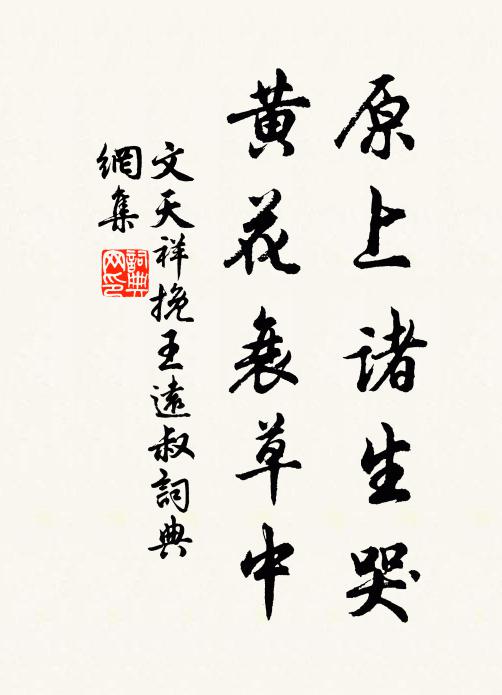 原上諸生哭
黄花衰草中
文天祥挽王遠叔詞典
網集
詞典
网印